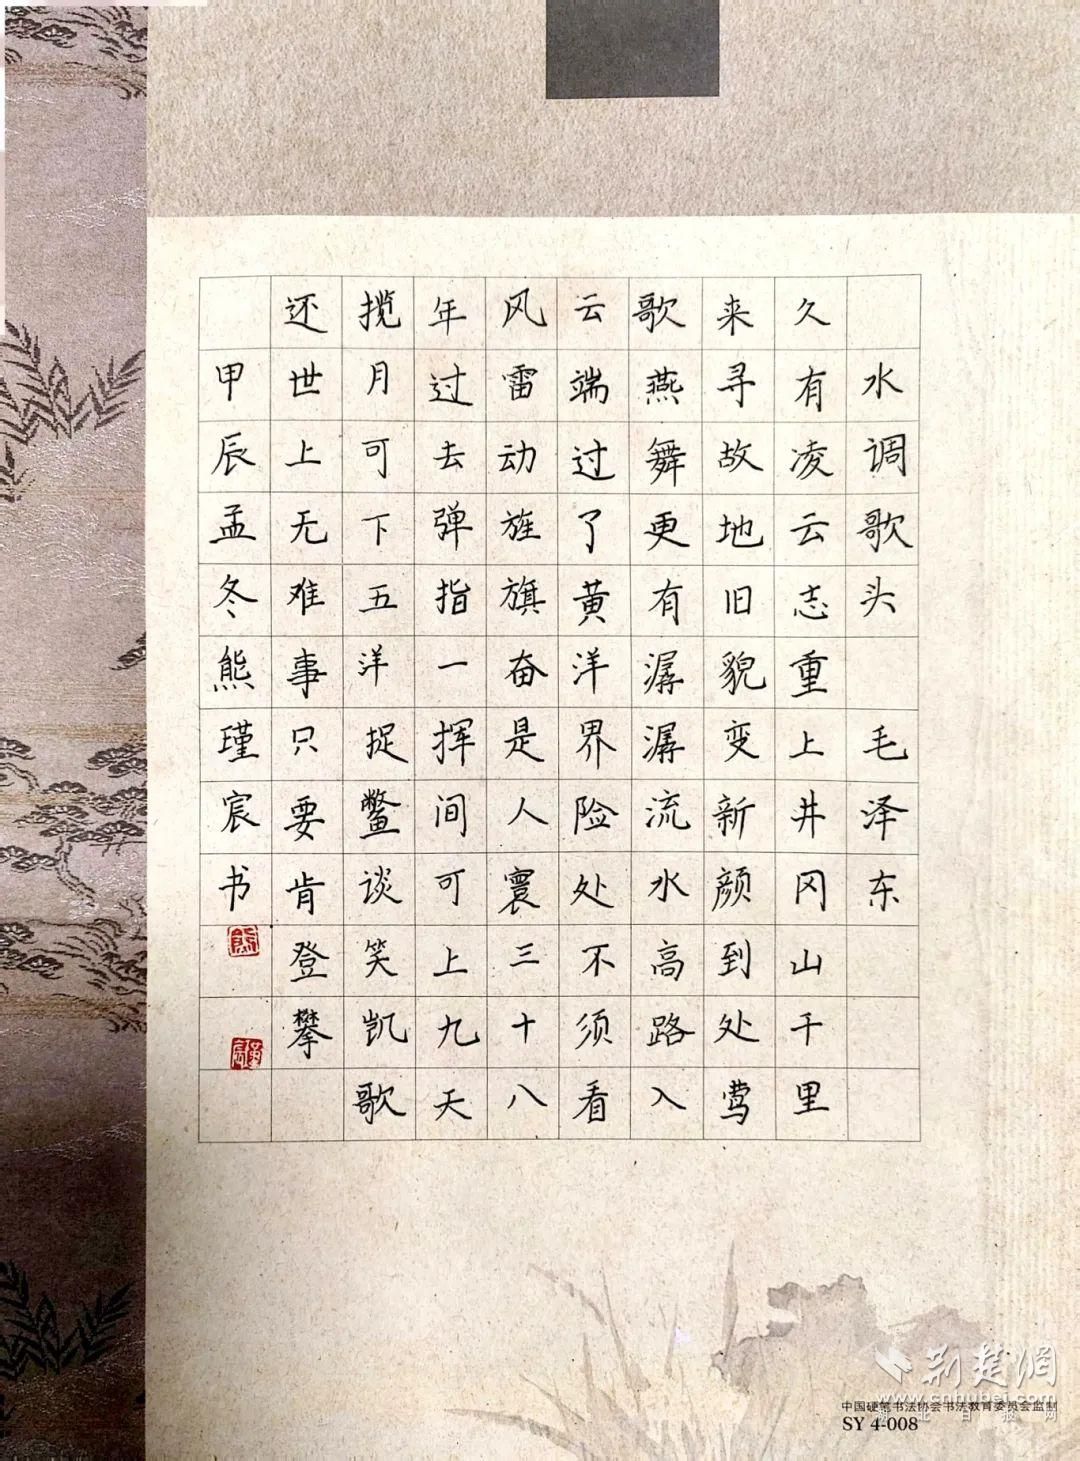 水调歌头 毛泽东
久有凌云志重上井冈山千里
来寻故地旧貌变新颜到处莺
歌燕舞更有潺潺流水高路入
云端过了黄洋界险处不须看
风雷动旌旗奋是人寰三十八
年过去弹指一挥间可上九天
揽月可下五洋捉鳖谈笑凯歌
还世上无难事只要肯登攀
甲辰孟冬熊瑾宸书
荆楚网
www.cnhubei.com
中国硬笔书法协会书法教育委员会监制
SY 4-008